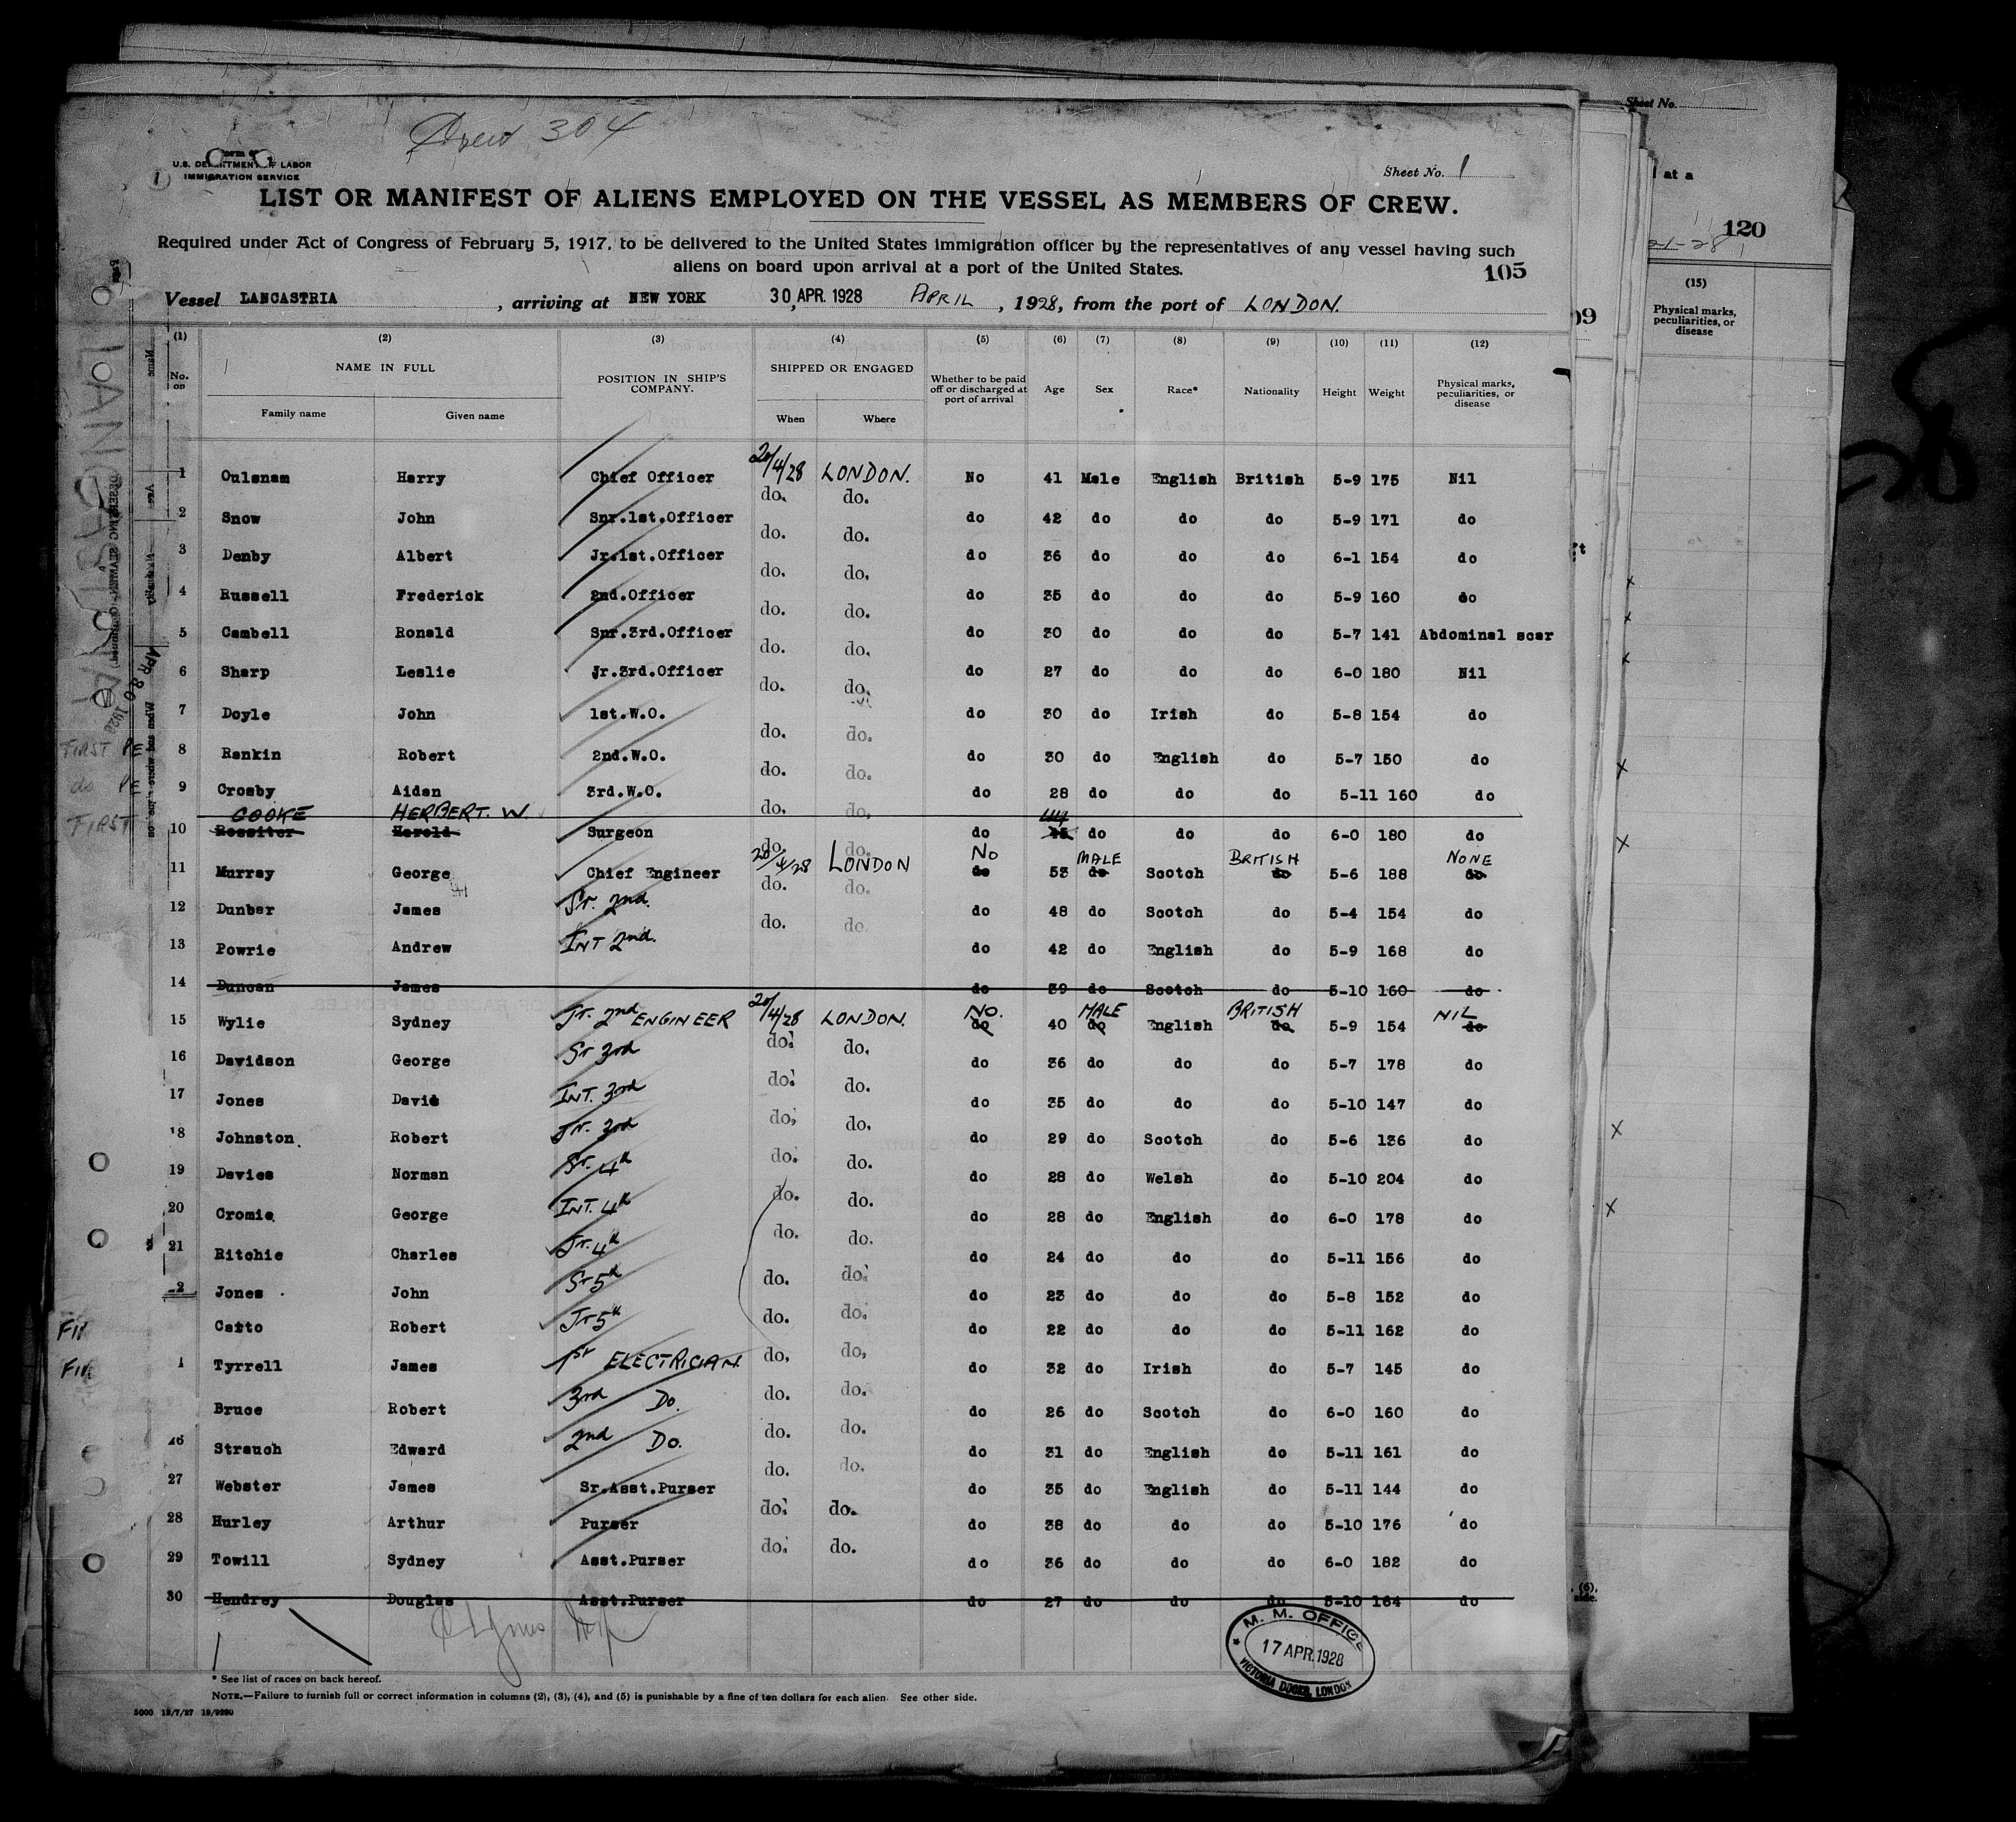 Crew 304
U.S. DEPARTMENT OF LABOR
IMMIGRATION SERVICE
Sheet No. 1
LIST OR MANIFEST OF ALIENS EMPLOYED ON THE VESSEL AS MEMBERS OF CREW.
Required under Act of Congress of February 5, 1917, to be delivered to the United States immigration officer by the representatives of any vessel having such
aliens on board upon arrival at a port of the United States.
105
Vessel LANCASTRIA, arriving at NEW YORK 30 APR. 1928 APRIL, 1928, from the port of LONDON.
(1) (2) (3) (4) (5) (6) (7) (8) (9) (10) (11) (12)
No. on NAME IN FULL Family name Given name POSITION IN SHIP'S COMPANY. SHIPPED OR ENGAGED When Where Whether to be paid off or discharged at port of arrival Age Sex Race* Nationality Height Weight Physical marks, peculiarities, or disease
1 Oulsnam Harry Chief Officer 20/4/28 LONDON. No 41 Male English British 5-9 175 Nil
2 Snow John Snr.1st.Officer do. do. do 42 do do do 5-9 171 do
3 Denby Albert Jr.1st.Officer do. do. do 36 do do do 6-1 154 do
4 Russell Frederick 2nd.Officer do. do. do 35 do do do 5-9 160 do
5 Cambell Ronald Snr.3rd.Officer do. do. do 30 do do do 5-7 141 Abdominal scar
6 Sharp Leslie Jr.3rd.Officer do. do. do 27 do do do 6-0 180 Nil
7 Doyle John 1st.W.O. do. do. do 30 do Irish do 5-8 154 do
8 Rankin Robert 2nd.W.O. do. do. do 30 do English do 5-7 150 do
9 Crosby Aidan 3rd.W.O. do. do. do 28 do do do 5-11 160 do
COOKE HERBERT. W. 44
10 Rossiter Harold Surgeon do. do. do 45 do do do 6-0 180 do
20/4/28 LONDON No MALE BRITISH NONE
11 Murray George Chief Engineer do. do. do 53 do Scotch do 5-6 188 do
12 Dunbar James Sr. 2nd. do. do. do 48 do Scotch do 5-4 154 do
13 Powrie Andrew INT 2nd. do. do. do 42 do English do 5-9 168 do
14 Duncan James do 39 do Scotch do 5-10 160 do
NO. MALE BRITISH NIL
15 Wylie Sydney Jr. 2nd ENGINEER 20/4/28 LONDON. do 40 do English do 5-9 154 do
16 Davidson George Sr 3rd do. do. do 36 do do do 5-7 178 do
17 Jones David INT. 3rd do. do. do 35 do do do 5-10 147 do
18 Johnston Robert Jr. 3rd do. do. do 29 do Scotch do 5-6 136 do
19 Davies Norman Sr. 4th do. do. do 28 do Welsh do 5-10 204 do
20 Cromie George INT. 4th do. do. do 28 do English do 6-0 178 do
21 Ritchie Charles Jr. 4th do. do. do 24 do do do 5-11 156 do
2 Jones John Sr 5th do. do. do 23 do do do 5-8 152 do
Catto Robert Jr 5th do. do. do 22 do do do 5-11 162 do
Tyrrell James 1st ELECTRICIAN. do. do. do 32 do Irish do 5-7 145 do
Bruce Robert 3rd Do. do. do. do 26 do Scotch do 6-0 160 do
26 Strauch Edward 2nd Do. do. do. do 31 do English do 5-11 161 do
27 Webster James Sr.Asst.Purser do. do. do 35 do English do 5-11 144 do
28 Hurley Arthur Purser do. do. do 38 do do do 5-10 176 do
29 Towill Sydney Asst.Purser do. do. do 36 do do do 6-0 182 do
30 Hendrey Douglas Asst.Purser do 27 do do do 5-10 164 do
M. M. OFFICE
17 APR.1928
VICTORIA DOCKS, LONDON
* See list of races on back hereof.
NOTE.—Failure to furnish full or correct information in columns (2), (3), (4), and (5) is punishable by a fine of ten dollars for each alien. See other side.
LANCASTRIA
FIRST
do
FIRST
Sheet No.
at a
120
(15)
Physical marks,
peculiarities, or
disease